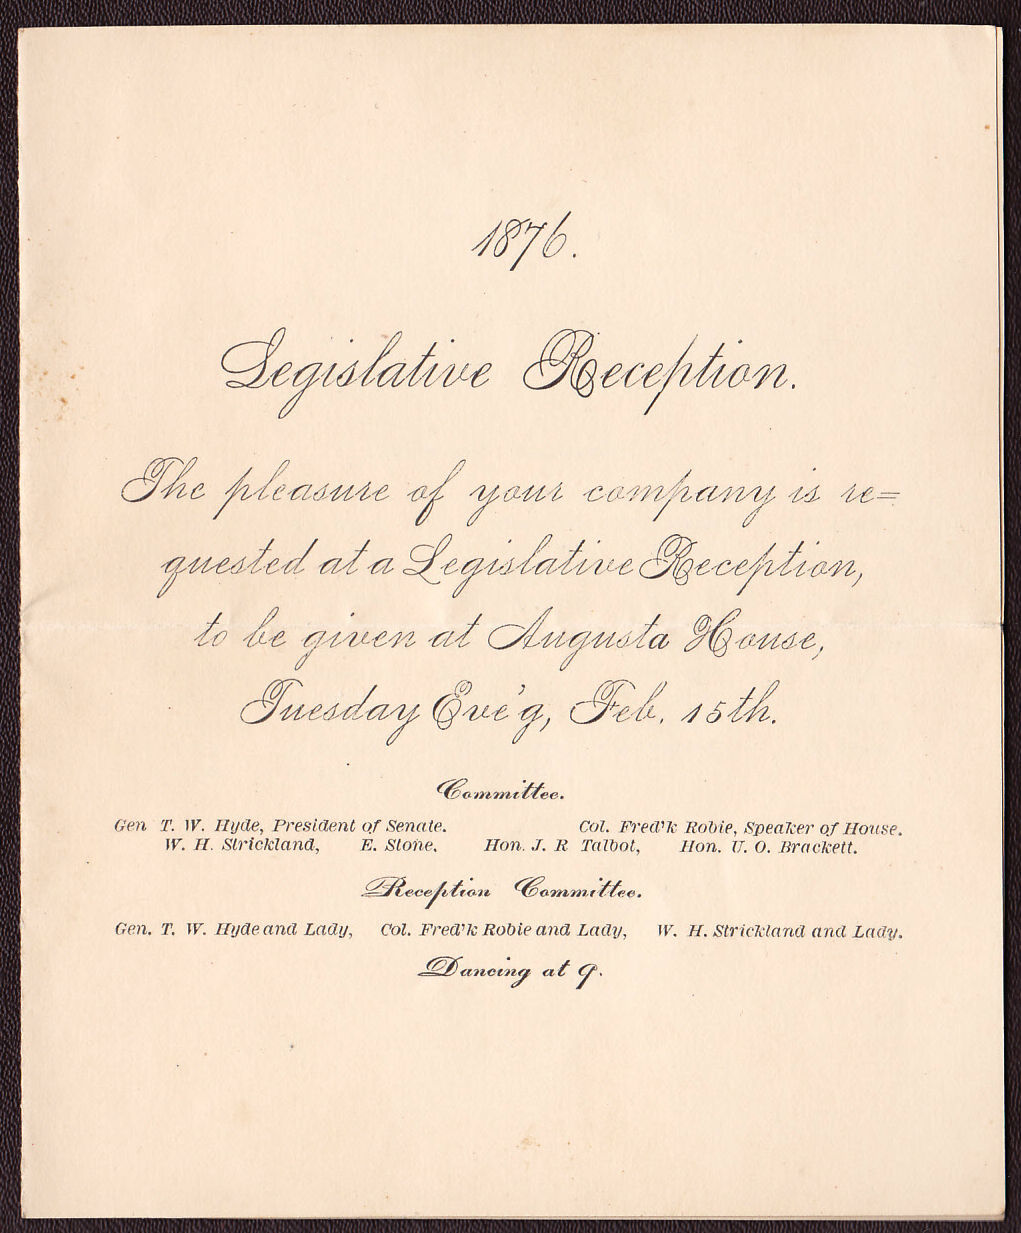 1876.
Legislative Reception.
The pleasure of your company is re=
quested at a Legislative Reception,
to be given at Augusta House,
Tuesday Eve'g, Feb. 15th.
Committee.
Gen T. W. Hyde, President of Senate. Col. Fred'k Robie, Speaker of House.
W. H. Strickland, E. Stone, Hon. J. R Talbot, Hon. U. O. Brackett.
Reception Committee.
Gen. T. W. Hyde and Lady, Col. Fred'k Robie and Lady, W. H. Strickland and Lady.
Dancing at 9.